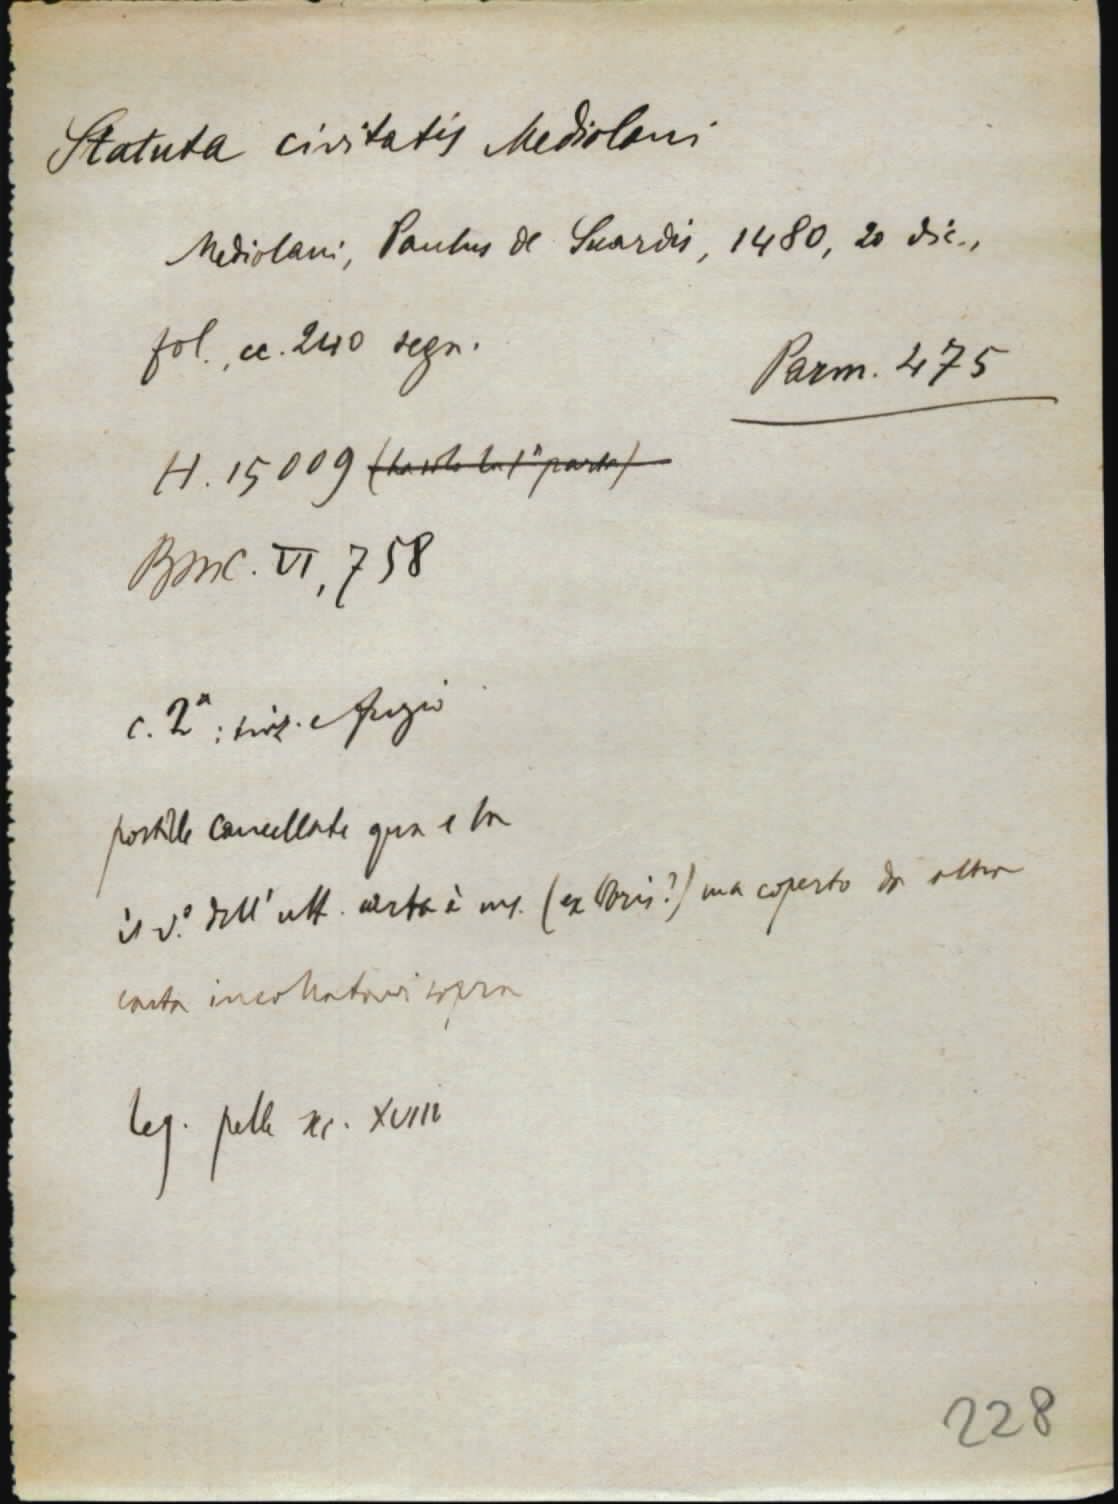 Statuta civitatis Mediolani
Mediolani, Paulus de Suardis, 1480, 20 dic.,
fol., cc. 240 segn.
Parm. 475
H. 15009 (ha solo la 1ª parte)
BMC. VI, 758
c. 2ª: iniz. e fregio
postille cancellate qua e la
il v.º dell'ult. carta è ms. (ex libris?) ma coperto da altra
carta incollatavi sopra
leg. pelle sec. XVIII
228